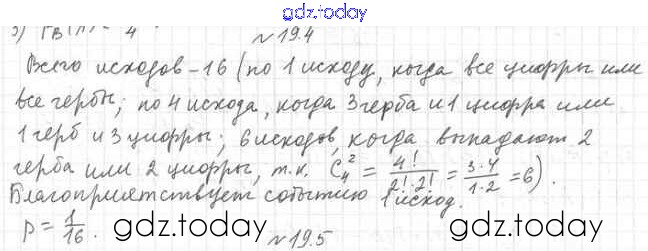 gdz.today
№19.4
Всего исходов - 16 (по 1 исходу, когда все цифры или
все гербы; по 4 исхода, когда 3 герба и 1 цифра или
1 герб и 3 цифры; 6 исходов, когда выпадают 2
герба или 2 цифры, т.к. C₄² = 4!/(2!·2!) = 3·4/(1·2) = 6).
Благоприятствует событию 1 исход.
p = 1/16.
gdz.today gdz.today
№19.5